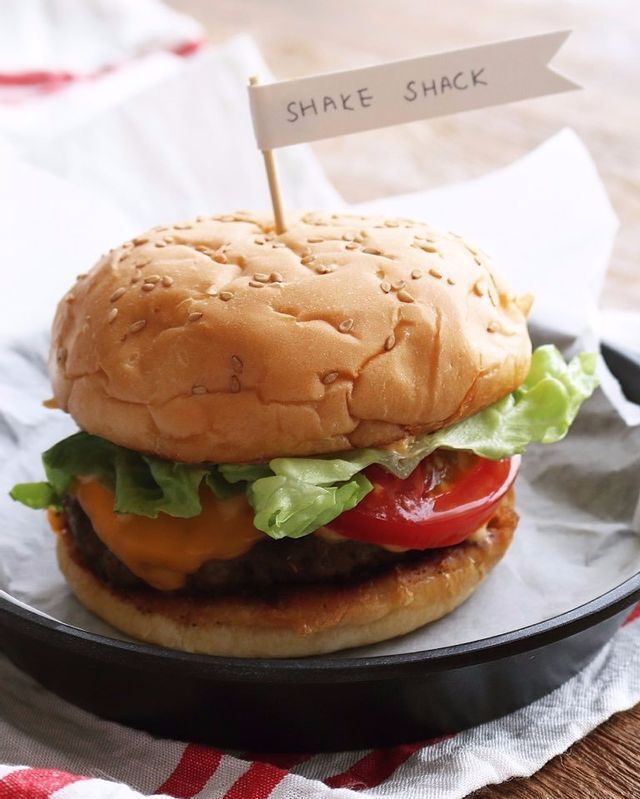 SHAKE SHACK